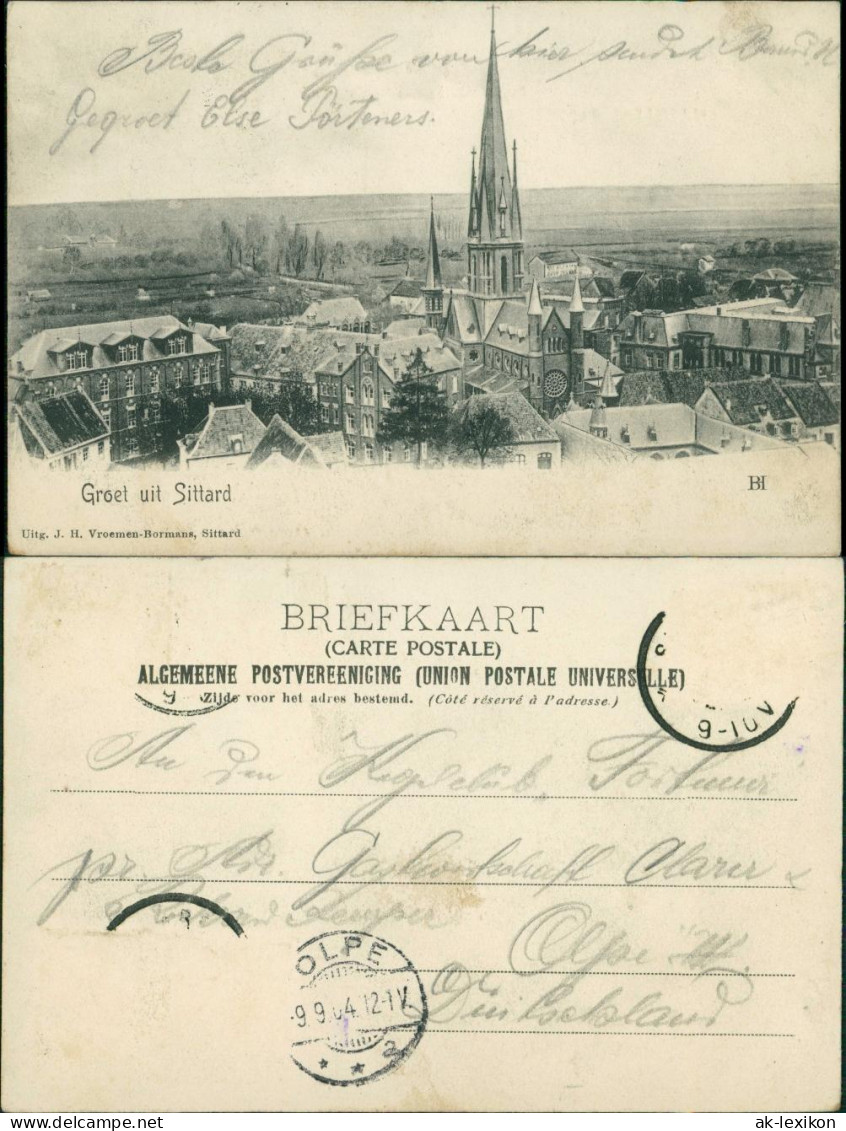 Beste Grüße von hier sendet
Gegroet Else Pörteners.
Groet uit Sittard
BH
Uitg. J. H. Vroemen-Bormans, Sittard
BRIEFKAART
(CARTE POSTALE)
ALGEMEENE POSTVEREENIGING (UNION POSTALE UNIVERSELLE)
Zijde voor het adres bestemd. (Côté réservé à l'adresse.)
9-10V
An den Kegelclub
pr. Adr. Gastwirtschaft
Olpe i/W.
Deutschland
OLPE
9.9.04.12-1V.
* * 2
ak-lexikon